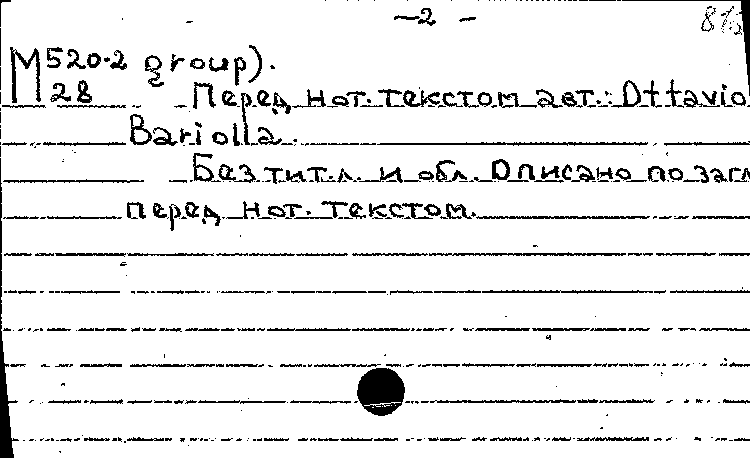 —2 —
M520-2 group).
28 Перед нот. текстом авт.: Ottavio
Bariolla.
Без тит. л. и обл. Описано по загл
перед нот. текстом.